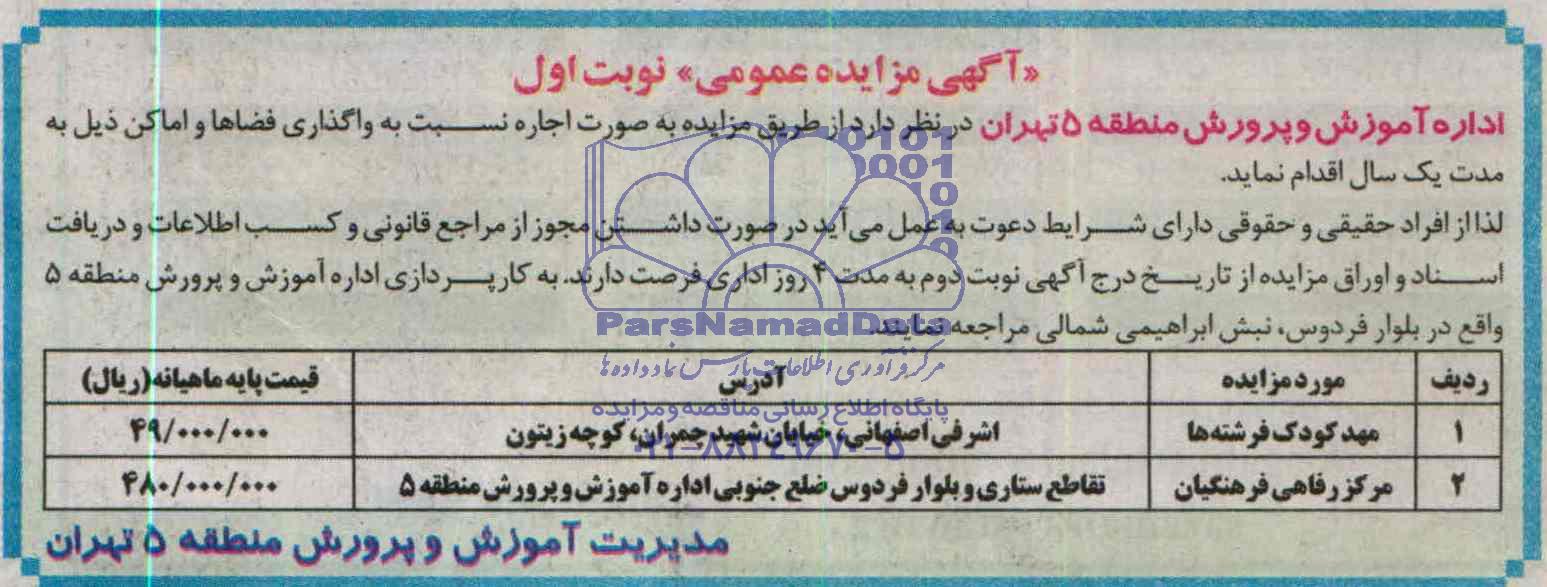 «آگهی مزایده عمومی» نوبت اول
اداره آموزش و پرورش منطقه ۵ تهران در نظر دارد از طریق مزایده به صورت اجاره نسبت به واگذاری فضاها و اماکن ذیل به
مدت یک سال اقدام نماید.
لذا از افراد حقیقی و حقوقی دارای شرایط دعوت به عمل می‌آید در صورت داشتن مجوز از مراجع قانونی و کسب اطلاعات و دریافت
اسناد و اوراق مزایده از تاریخ درج آگهی نوبت دوم به مدت ۴ روز اداری فرصت دارند. به کارپردازی اداره آموزش و پرورش منطقه ۵
واقع در بلوار فردوس، نبش ابراهیمی شمالی مراجعه نمایند.
ردیف مورد مزایده آدرس قیمت پایه ماهیانه (ریال)
۱ مهد کودک فرشته‌ها اشرفی اصفهانی، خیابان شهید چمران، کوچه زیتون ۴۹/۰۰۰/۰۰۰
۲ مرکز رفاهی فرهنگیان تقاطع ستاری و بلوار فردوس ضلع جنوبی اداره آموزش و پرورش منطقه ۵ ۴۸۰/۰۰۰/۰۰۰
مدیریت آموزش و پرورش منطقه ۵ تهران
ParsNamadData
مرکز فرآوری اطلاعات پارس نماد داده ها
پایگاه اطلاع رسانی مناقصه و مزایده
۰۲۱-۸۸۳۴۹۶۷۰-۵